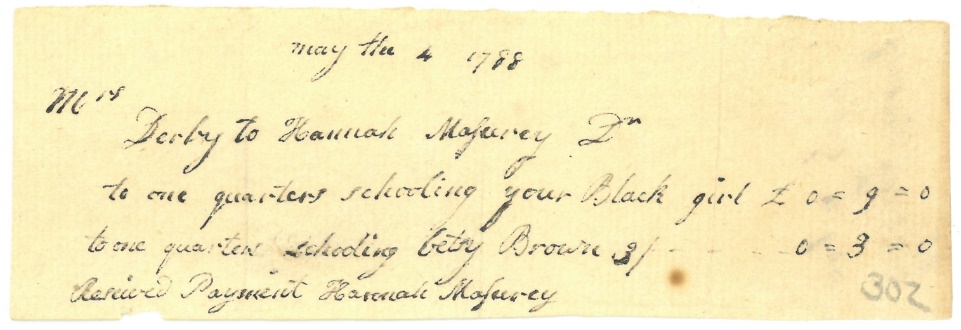 may the 4 1788
Mrs
Derby to Hannah Masurey Dr
to one quarters schooling your Black girl £ 0 = 9 = 0
to one quarter schooling betsy Brown 3/ - - - - 0 = 3 = 0
Received Payment Hannah Masurey
302